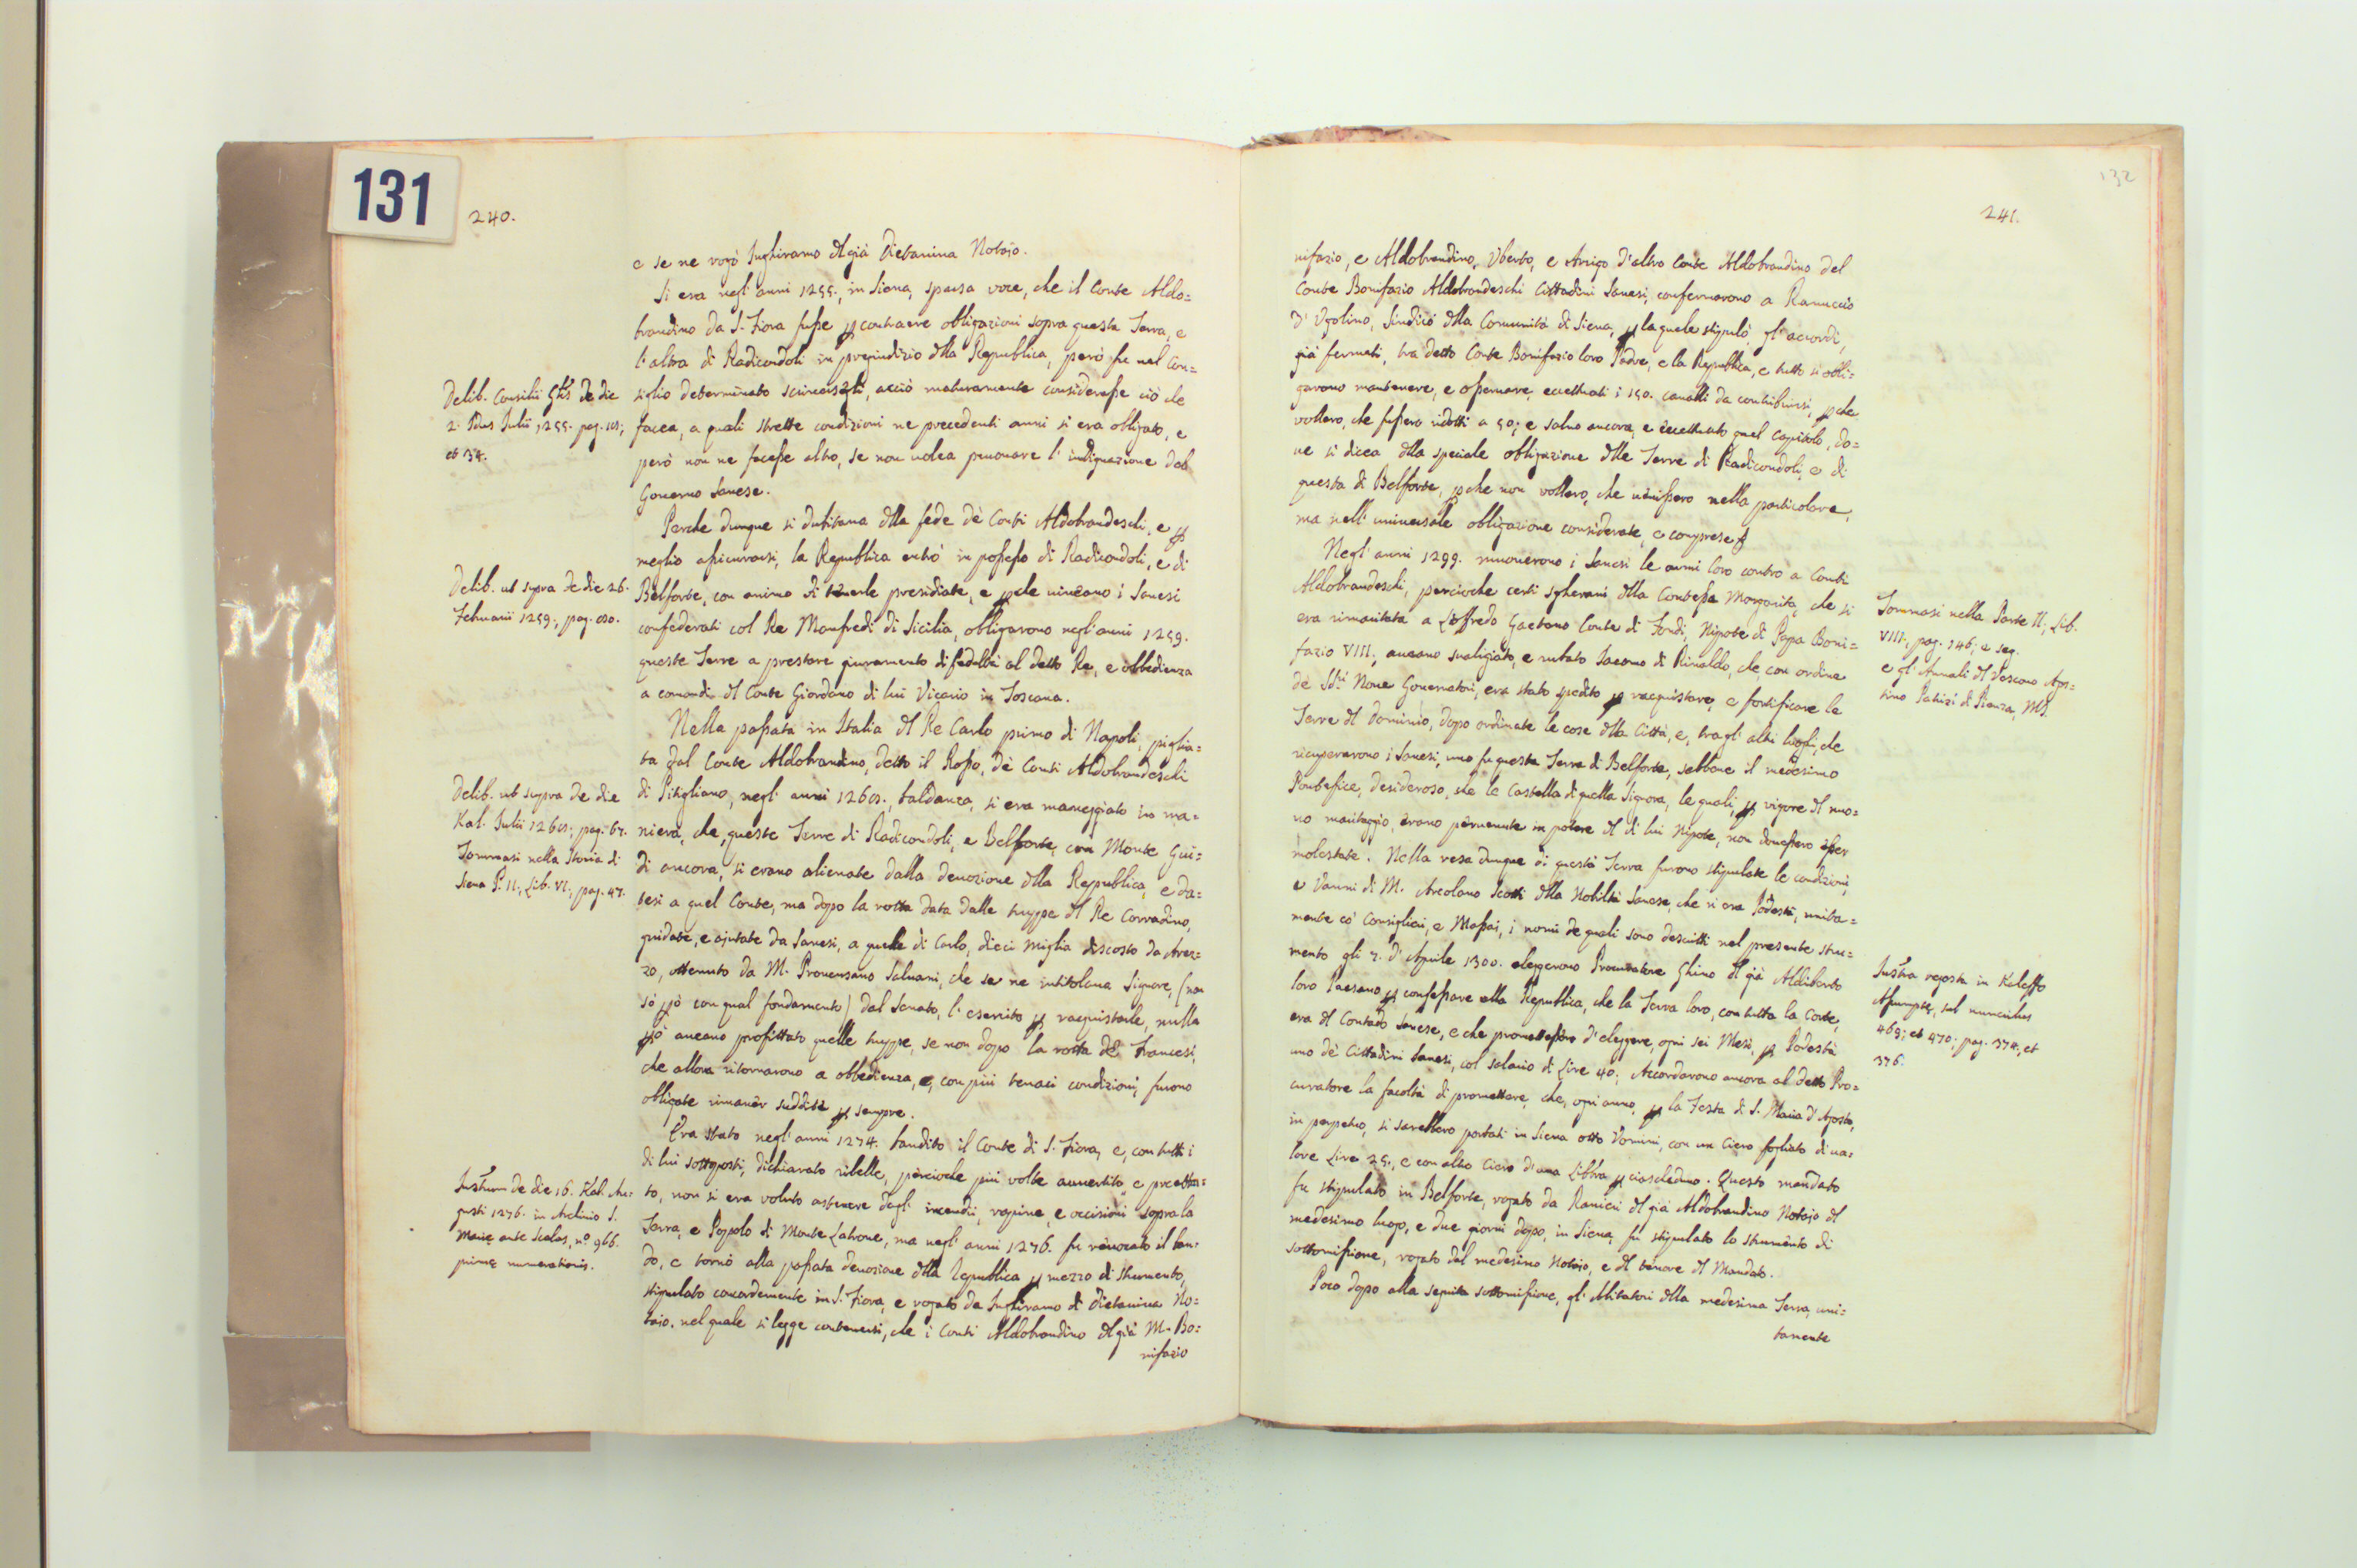 131
240.
e se ne rogò Inghiramo d'già Dietanina Notaio.
Si era negl'anni 1255., in Siena, sparsa voce, che il Conte Aldo=
brandino da S. Fiora fusse p contraere obligazioni sopra questa Terra, e
l'altra di Radicondoli in pregiudizio dlla Republica, però fu nel Con=
siglio determinato scriversegli, acciò maturamente considerasse ciò che
facea, a quali strette condizioni ne precedenti anni si era obligato, e
però non ne facesse altro, se non volea provare l'indignazione del
Governo Sanese.
Delib. Consilii Gñs de die
2. Idus Julii 1255. pag.
et 34.
Perche dunque si dubitava dlla fede dè Conti Aldobrandeschi, e p
meglio assicurarsi, la Republica entrò in possesso di Radicondoli, e di
Belforte, con animo di tenerle presidiate, e pche viveano i Sanesi
confederati col Re Manfredi di Sicilia, obligarono negl'anni 1259.
queste Terre a prestare giuramento di fedeltà al detto Re, e obbedienza
a comandi dl Conte Giordano di lui Vicario in Toscana.
Delib. ut supra de die 26.
Februarii 1259., pag.
Nella passata in Italia dl Re Carlo primo di Napoli, piglia=
ta dal Conte Aldobrandino, detto il Rosso, dè Conti Aldobrandeschi
di Pitigliano, negl'anni baldanza, si era maneggiato in ma=
niera, che, queste Terre di Radicondoli, e Belforte, con Monte Gui=
di ancora, si erano alienate dalla devozione dlla Republica, e da=
tesi a quel Conte, ma dopo la rotta data dalle truppe dl Re Corradino,
guidate, e ajutate da Sanesi, a quelle di Carlo, dieci miglia discosto da Arez=
zo, ottenuto da M. Provenzano Salvani, che se ne intitolava Signore, (non
sò pò con qual fondamento) dal Senato, l'esercito p racquistarle, nulla
pò aveano profittato quelle truppe, se non dopo la rotta dè Francesi,
che allora ritornarono a obbedienza, e, con più tenaci condizioni, furono
obligate rimanèr suddite p sempre.
Delib. ut supra de die
Kal. Julii pag. 67.
Tommasi nella Storia di
Siena P. II., Lib. VI., pag. 47.
Era stato negl'anni 1274. bandito il Conte di S. Fiora, e, con tutti i
di lui sottoposti, dichiarato ribelle, perciocche più volte avvertito, e precetta=
to, non si era voluto astenere dagl'incendii, rapine, e occisioni sopra la
Terra, e Popolo di Monte Latrone, ma negl'anni 1276. fu rèvocato il ban=
do, e tornò alla passata devozione dlla Republica p mezzo di strumento,
stipulato concordemente in S. Fiora, e rogato da Inghiramo di Dietanina No=
taio. nel quale si legge contenersi, che i Conti Aldobrandino dl già M. Bo=
nifazio
Instrum de die 16. Kal. Au=
gusti 1276. in Archivio S.
Marię ante Scalas, nº 966.
primę numerationis.
132
241.
nifazio, e Aldobrandino, Uberto, e Arrigo d'altro Conte Aldobrandino del
Conte Bonifazio Aldobrandeschi Cittadini Sanesi, confermarono a Ranuccio
d'Ugolino, Sindico dlla Comunità di Siena, p la quale stipulò, gl'accordi,
già fermati, tra detto Conte Bonifazio loro Padre, e la Republica, e tutto si obli=
garono mantenere, e osservare, eccettuati i 150. cavalli da contribuirsi, pche
vollero, che fussero ridotti a 50; e salvo ancora, e eccettuato quel Capitolo, do=
ve si dicea dlla speciale obligazione dlle Terre di Radicondoli, e di
questa di Belforte, pche non vollero, che venissero nella particolare,
ma nell'universale obligazione considerate, e comprese
Negl'anni 1299. muoverono i Sanesi le armi loro contro a Conti
Aldobrandeschi, perciocche certi sgherani dlla Contessa Margarita, che si
era rimaritata a Loffredo Gaetano Conte di Fondi, Nipote di Papa Boni=
fazio VIII., aveano svaligiato, e rubato Iacomo di Rinaldo, che con ordine
dè Sdti Nove Governatori, era stato spedito p racquistare, e fortificare le
Terre dl dominio, dopo ordinate le cose dlla Città, e, tra gl'altri luoghi, che
ricuperarono i Sanesi, uno fu questa Terra di Belforte, sebbene il medesimo
Pontefice, desideroso, che le Castella di quella Signora, le quali, p vigore dl nuo=
vo maritaggio, erano pervenute in potere dl di lui Nipote, non dovessero esser
molestate. Nella resa dunque di questa Terra furono stipulate le condizioni,
e Vanni di M. Arcolano Scotti dlla Nobiltà Sanese, che vi era Podestà, unita=
mente co' Consiglieri, e Massai, i nomi de quali sono descritti nel presente stru=
mento gli 7. d'Aprile 1300. elessero Procuratore Ghino dl già Aldiberto
loro Paesano p confessare alla Republica, che la Terra loro, con tutta la Corte,
era dl Contado Sanese, e che promettessero d'eleggere, ogni sei Mesi, p Podestà
uno dè Cittadini Sanesi, col salario di Lire 40; Accordarono ancora al detto Pro=
curatore la facoltà di promettere, che, ogni anno, p la Festa di S. Maria d'Agosto,
in perpetuo, si sarebbero portati in Siena otto Uomini, con un Cero fogliato di va=
lore Lire 25., e con altro Cero d'una Libbra p ciascheduno. Questo mandato
fu stipulato in Belforte, rogato da Ranieri dl già Aldobrandino Notaio dl
medesimo luogo, e due giorni dopo, in Siena, fu stipulato lo strumento di
sottomissione, rogato dal medesimo Notaio, e dl tènore dl Mandato.
Poco dopo alla seguita sottomissione, gl'Abitatori dlla medesima Terra, uni=
tamente
Tommasi nella Parte II., Lib.
VIII., pag. 146., e seg.
e gl'Annali dl Vescovo Ago=
stino Patrizi di Pienza, MS.
Instra reposta in Kaleffo
Assumptę, sub numeribus
469; et 470; pag. 374., et
376.